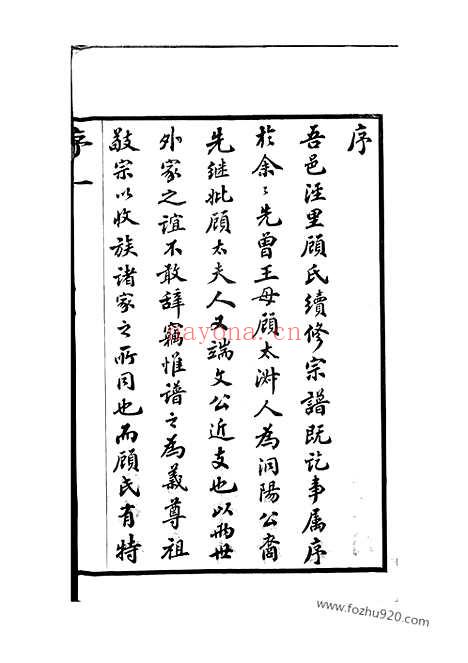 序
吾邑涇里顧氏續修宗譜既訖事属序
於余〻先曾王母顧太淑人為洞陽公裔
先继妣顧太夫人又端文公近支也以兩世
外家之誼不敢辞竊惟譜之為義尊祖
敬宗以收族诸家之所同也而顧氏有特
序 一
nayona.cn
www.fozhu920.com